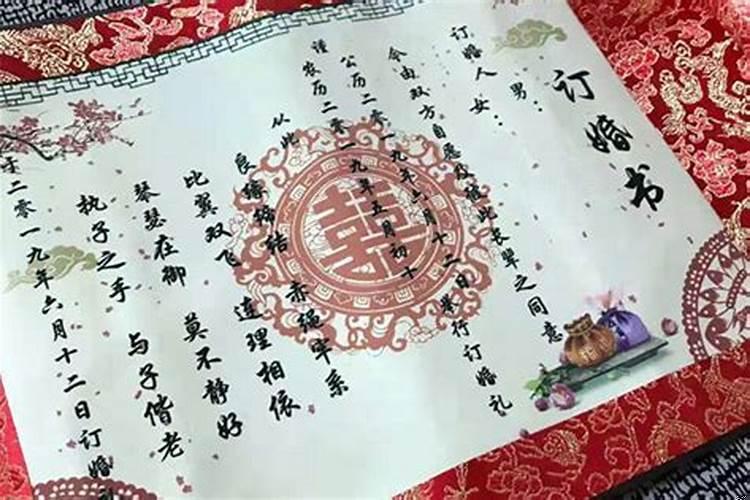 订婚书
男：
订婚人
女：
今由双方自愿及彼此长辈之同意
谨
公历二零一九年六月十二日举行订婚礼
农历二零一九年五月初十
从此
良缘缔结 赤绳牢系
比翼双飞 连理相依
琴瑟在御 莫不静好
执子之手 与子偕老
于二零一九年六月十二日订婚